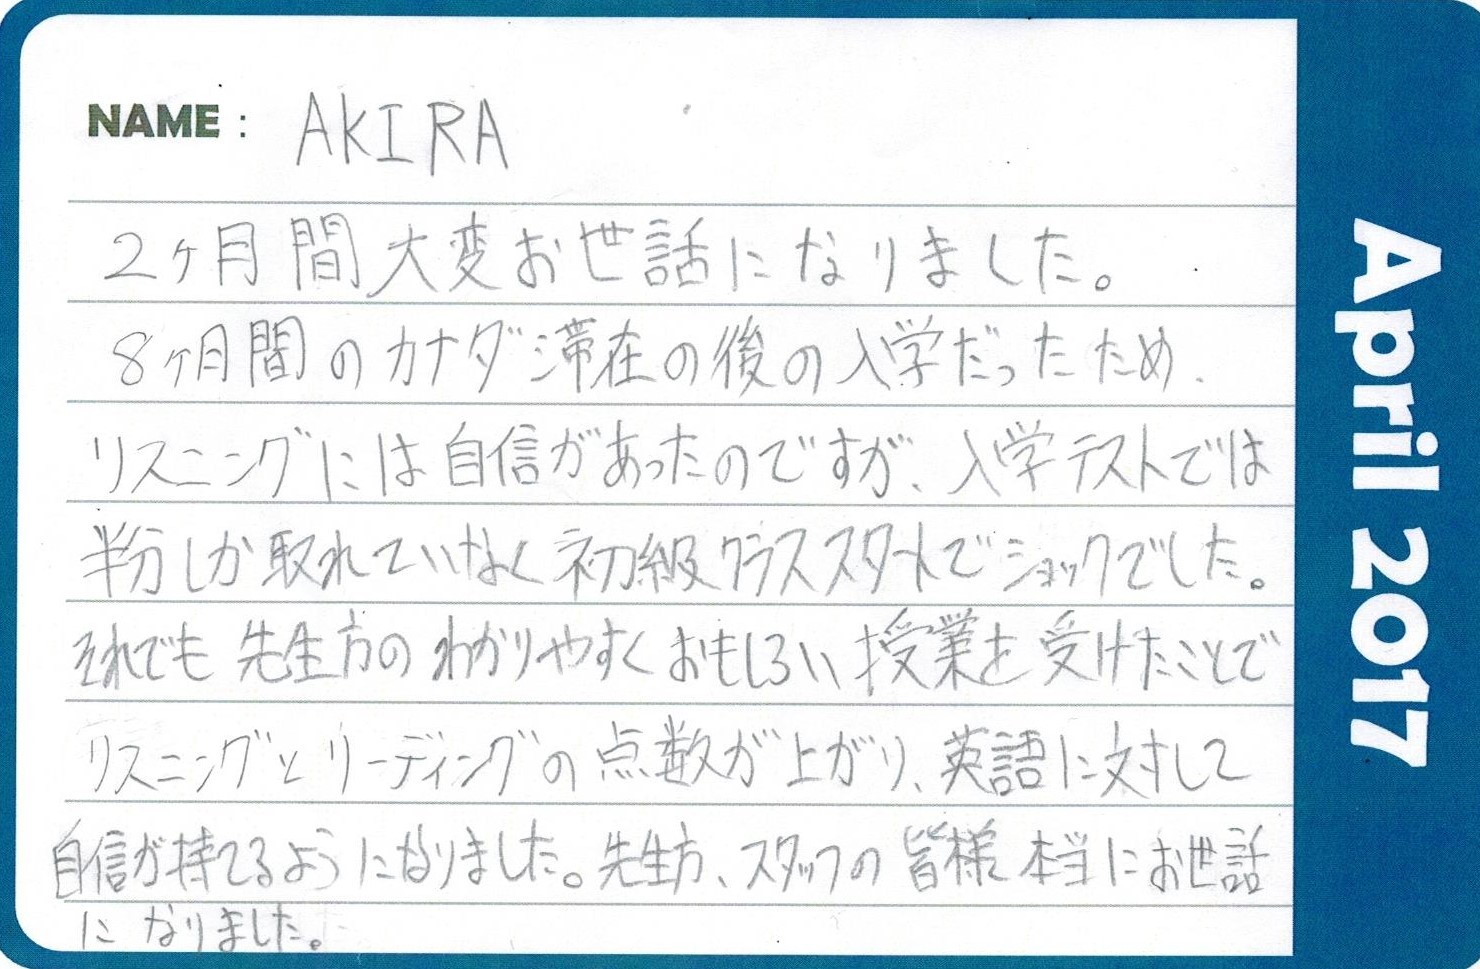 NAME : AKIRA
2ヶ月間大変お世話になりました。
8ヶ月間のカナダ滞在の後の入学だったため、
リスニングには自信があったのですが、入学テストでは
半分しか取れていなく初級クラススタートでショックでした。
それでも先生方のわかりやすくおもしろい授業を受けたことで
リスニングとリーディングの点数が上がり、英語に対して
自信が持てるようになりました。先生方、スタッフの皆様本当にお世話
になりました。
April 2017